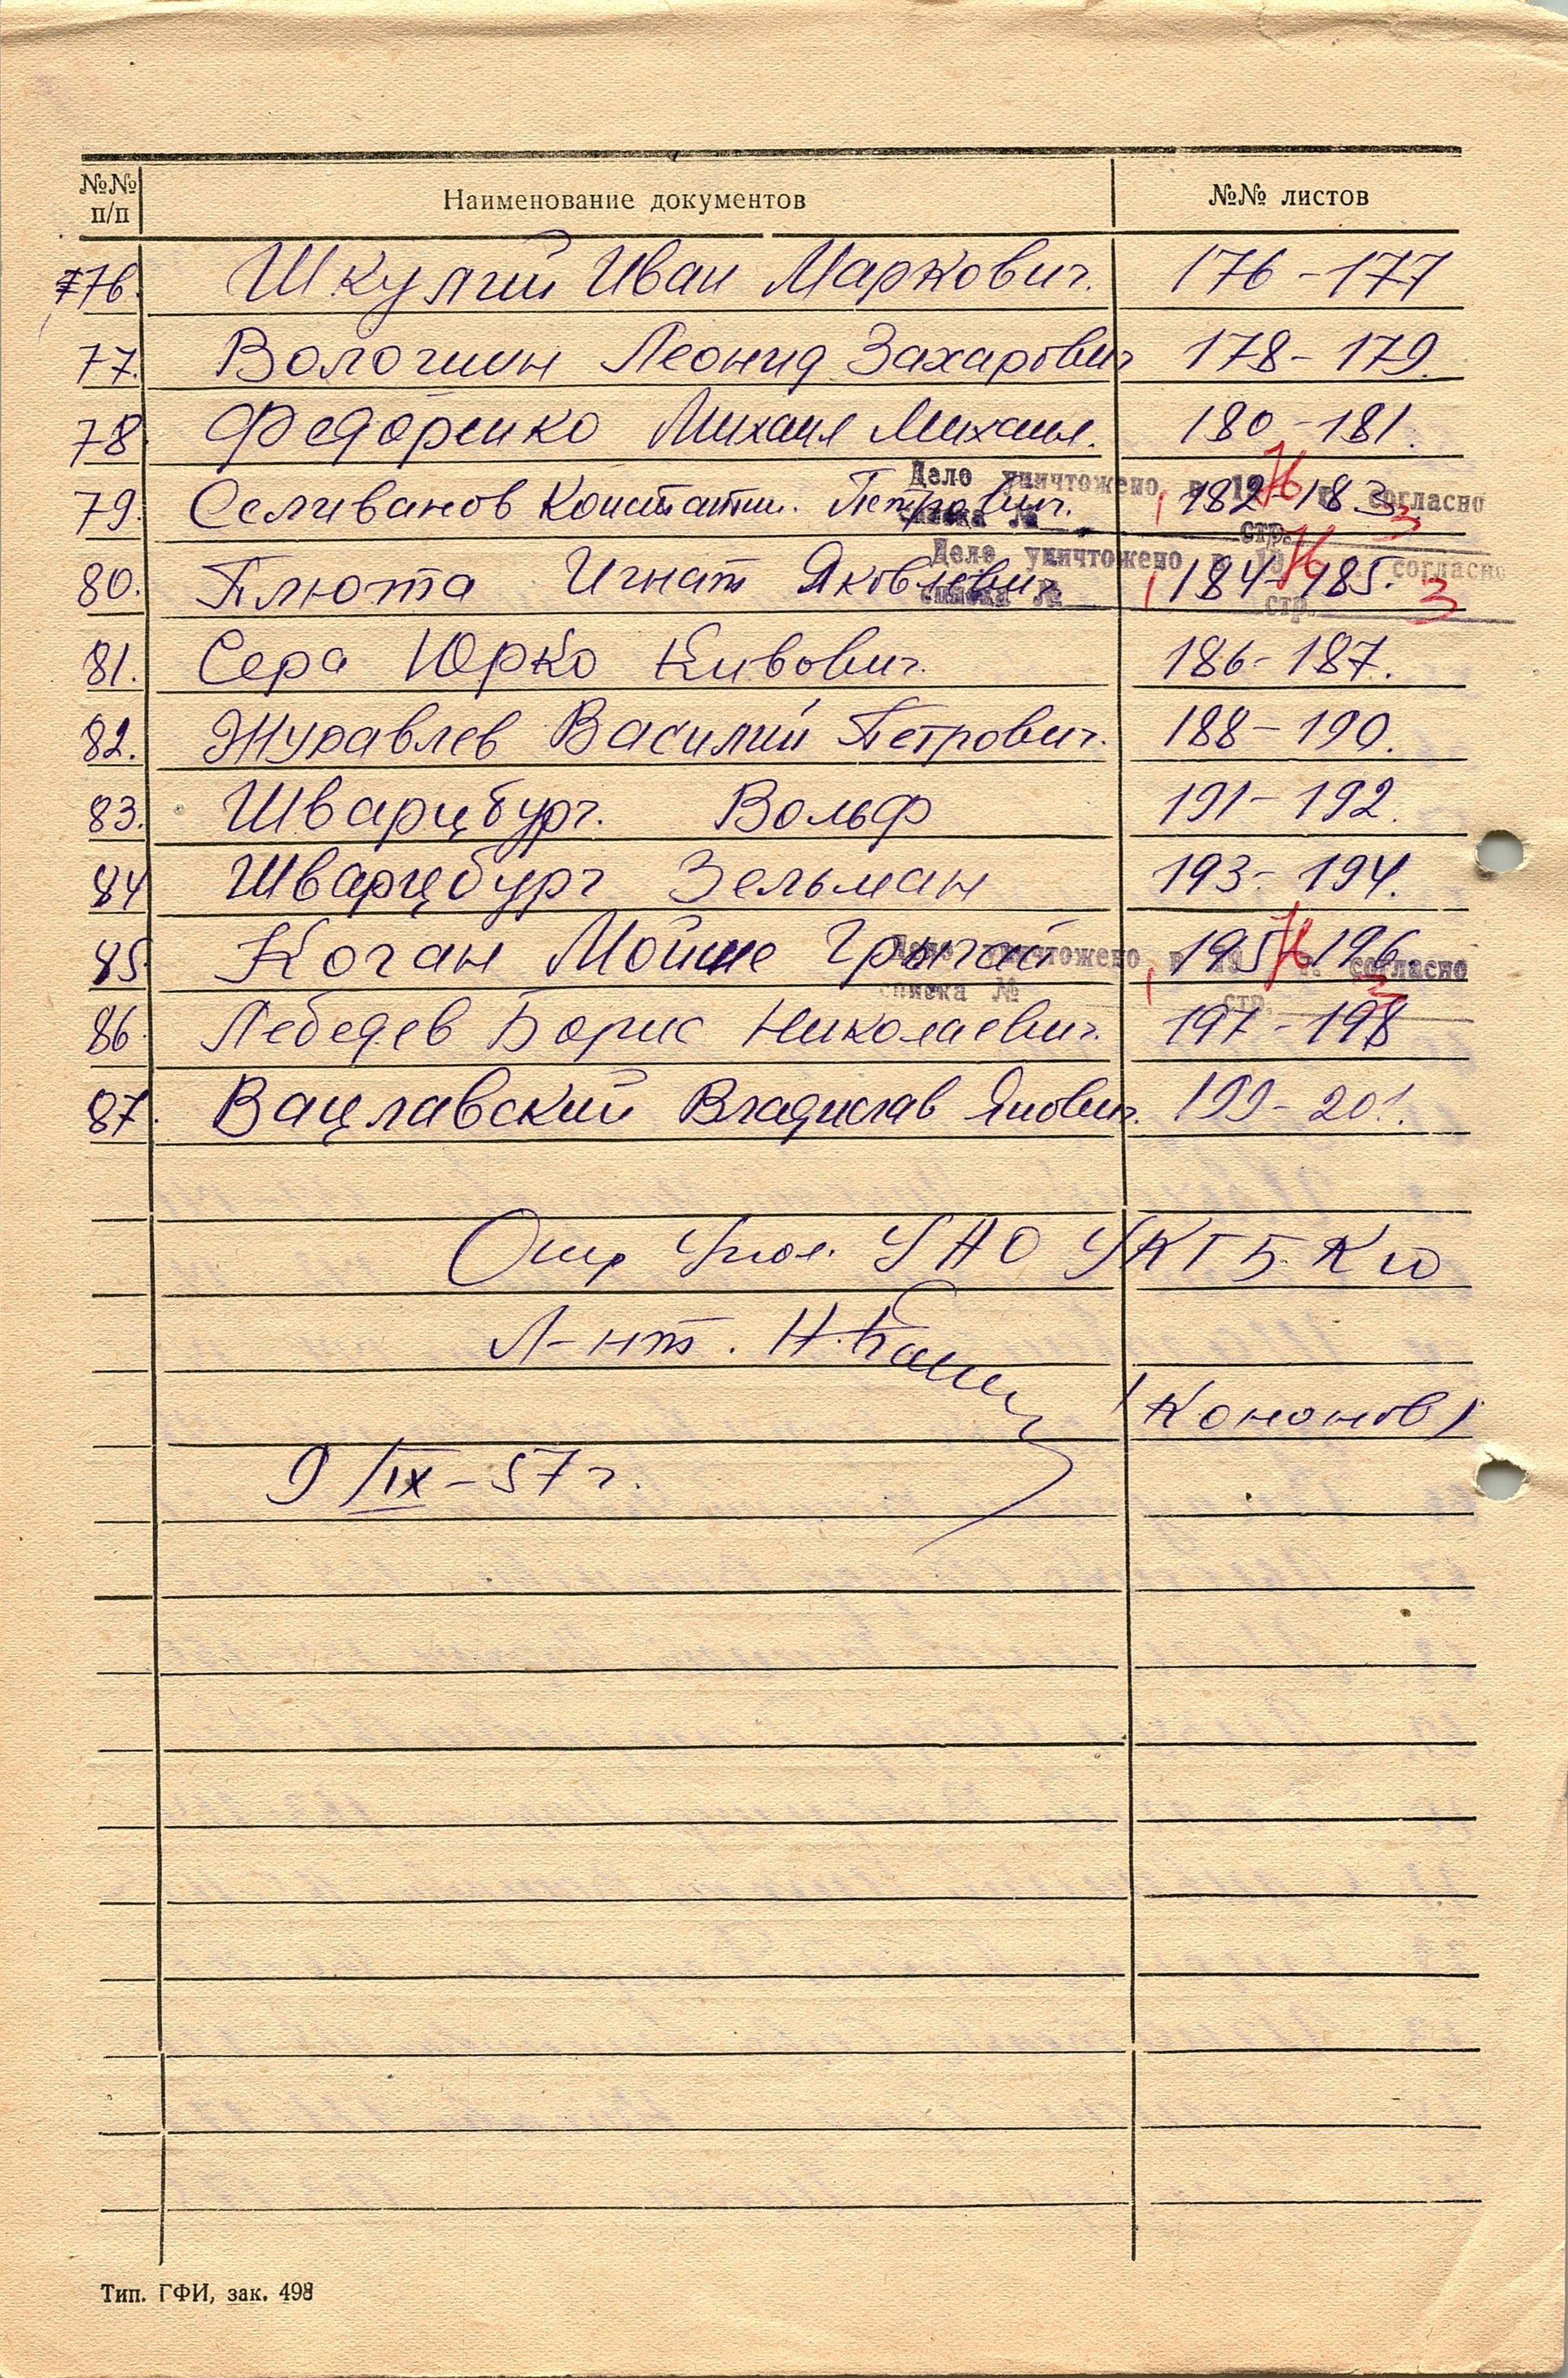 №№ п/п Наименование документов №№ листов
76. Шкулий Иван Маркович. 176-177
77. Волошин Леонид Захарович 178-179.
78. Федоренко Михаил Михаил. 180-181.
79. Селиванов Константин. Петрович. 182-183
Дело уничтожено в 1976 г. согласно
списка № стр. 3
80. Плюта Игнат Яковлевич 184-185.
Дело уничтожено в 1976 г. согласно
списка № стр. 3
81. Сера Юрко Кивович. 186-187.
82. Журавлев Василий Петрович. 188-190.
83. Шварцбург. Вольф 191-192.
84 Шварцбург Зельман 193-194.
85. Коган Мойше 195-196.
Дело уничтожено в 1976 г. согласно
списка № стр. 3
86. Лебедев Борис Николаевич. 197-198
87. Вацлавский Владислав Янович. 199-201.
Опер Упол. УАО УКГБ КО
Л-нт.
/Кононов/
9/IX-57 г.
Тип. ГФИ, зак. 498